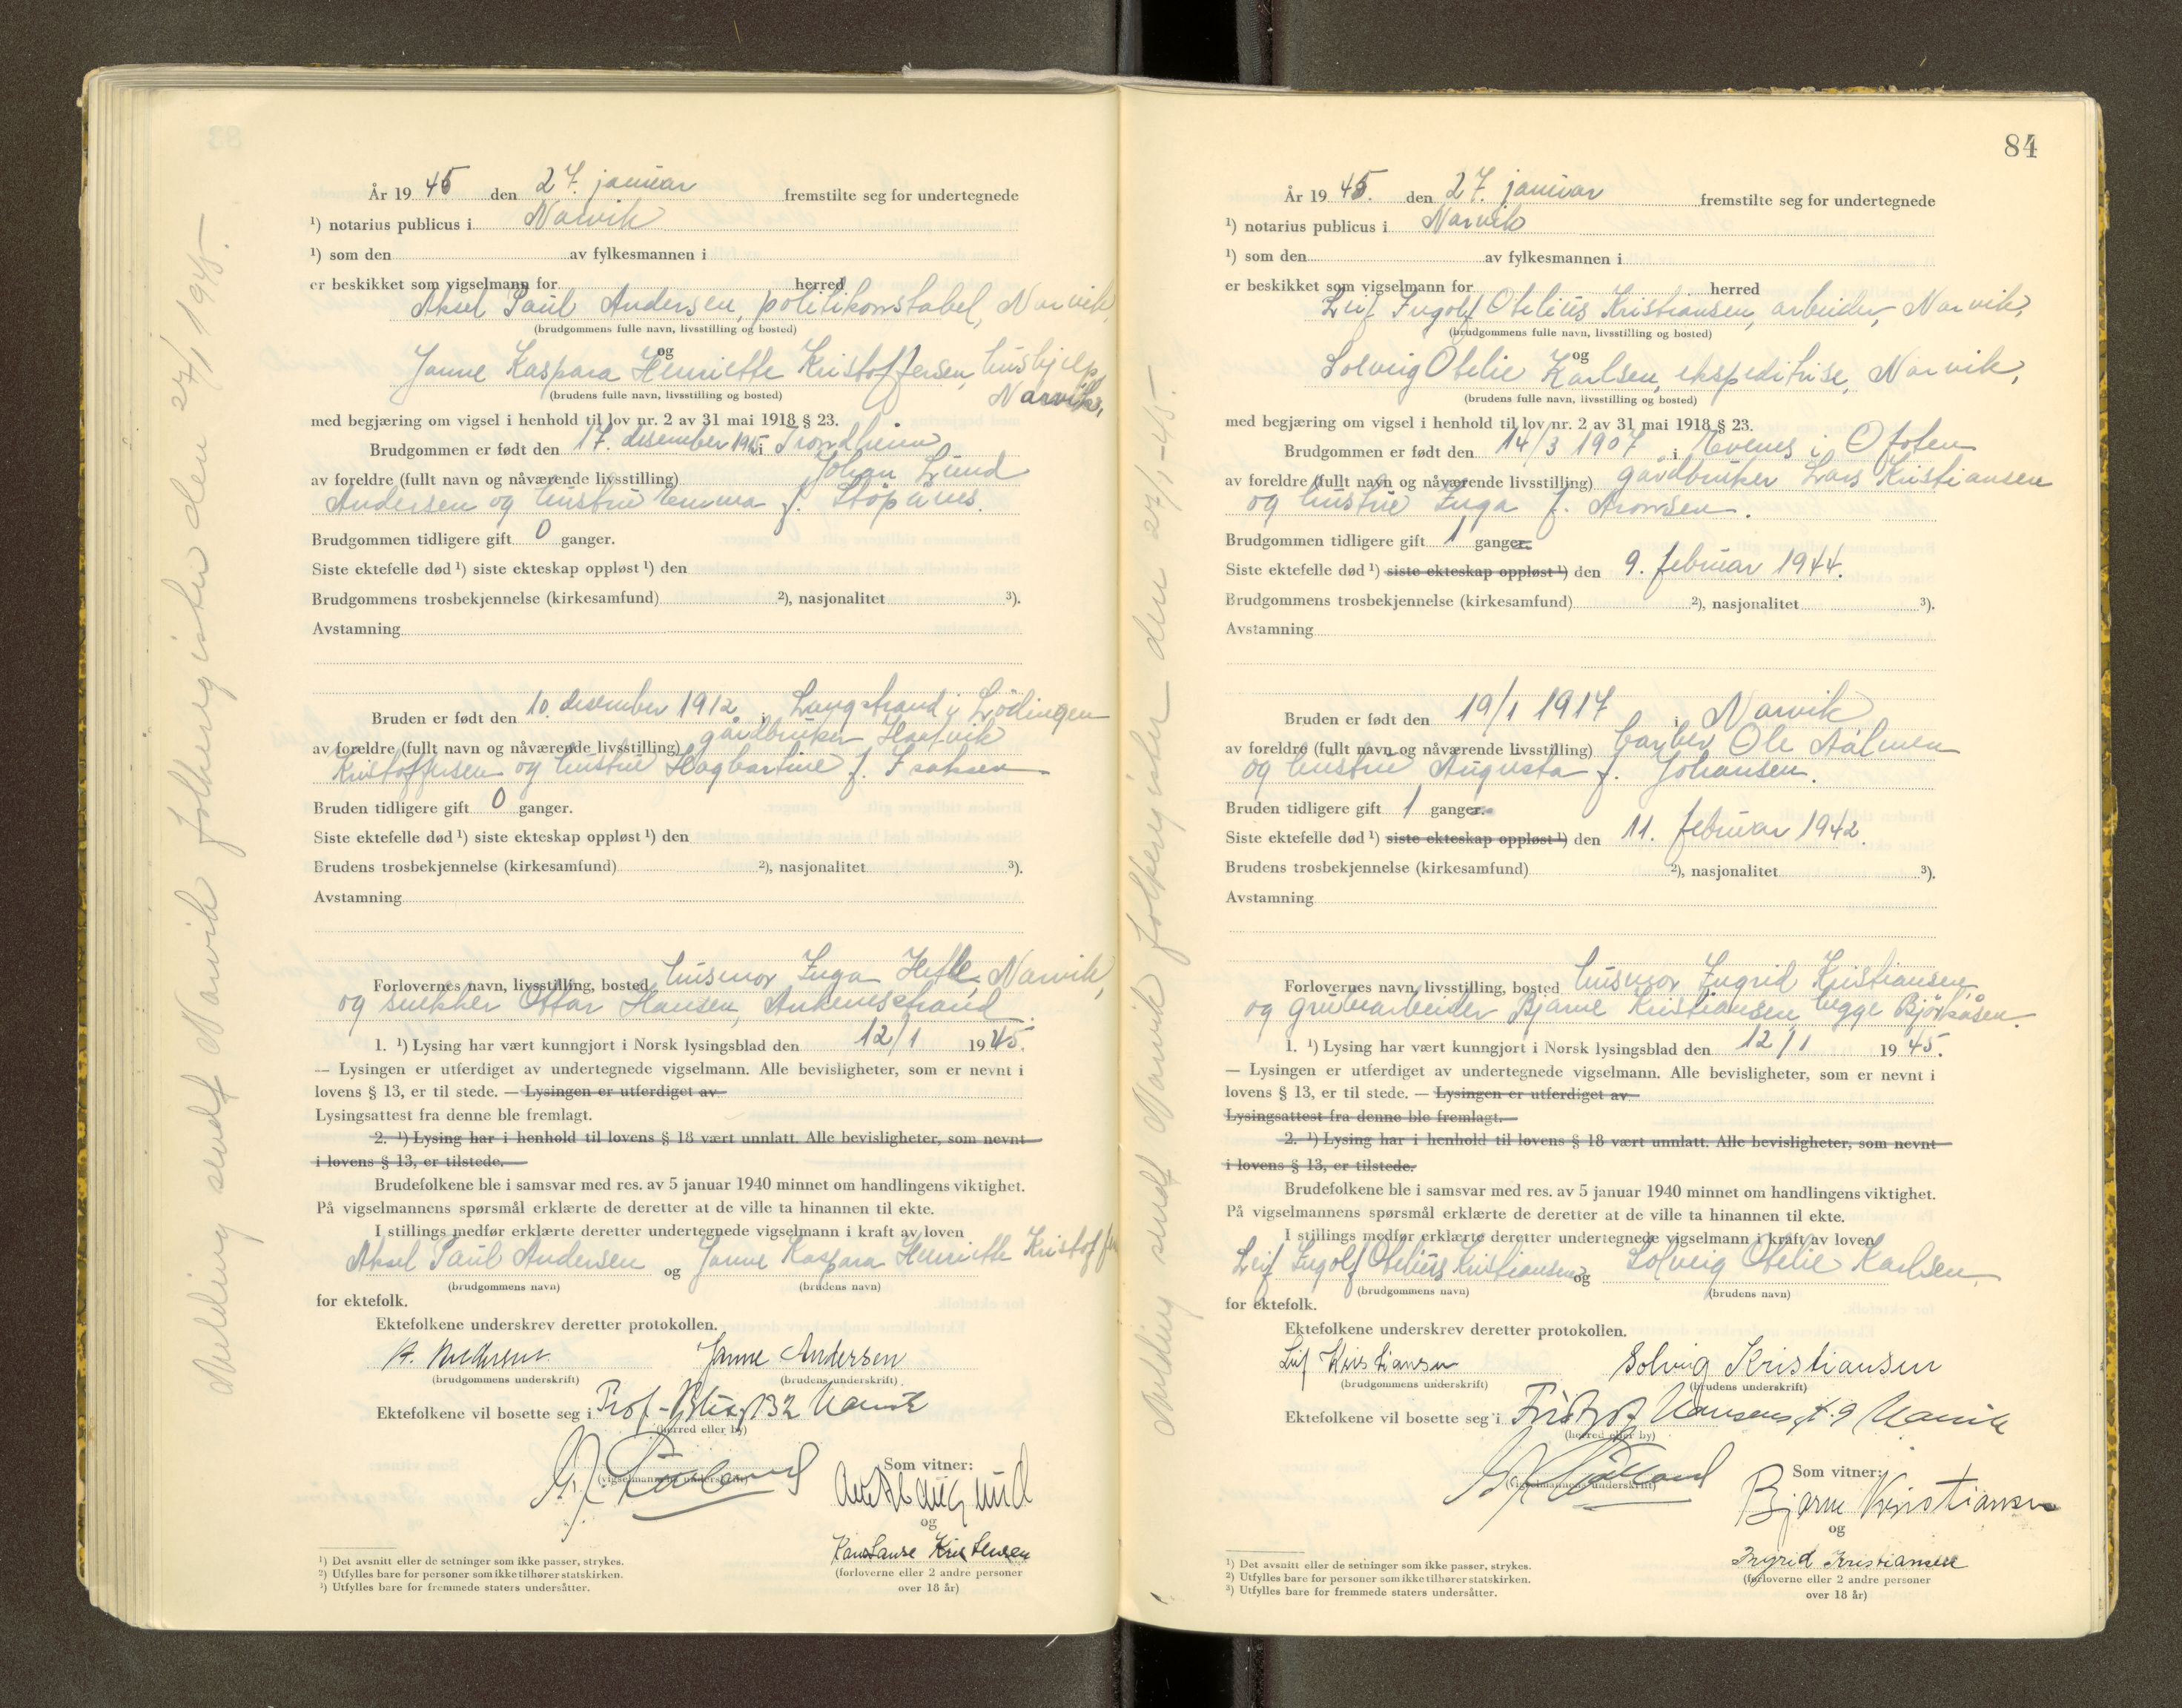 År 1945 den 27. januar fremstilte seg for undertegnede
¹) notarius publicus i Narvik
¹) som den av fylkesmannen i
er beskikket som vigselmann for herred
Aksel Paul Andersen, politikonstabel, Narvik,
(brudgommens fulle navn, livsstilling og bosted)
og
Janne Kaspara Henriette Kristoffersen, hushjelp,
Narvik,
(brudens fulle navn, livsstilling og bosted)
med begjæring om vigsel i henhold til lov nr. 2 av 31 mai 1918 § 23.
Brudgommen er født den 17. desember 1915 i Trondheim
av foreldre (fullt navn og nåværende livsstilling) Johan Lund
Andersen og hustru Emma f.
Brudgommen tidligere gift 0 ganger.
Siste ektefelle død ¹) siste ekteskap oppløst ¹) den
Brudgommens trosbekjennelse (kirkesamfund) ²), nasjonalitet ³).
Avstamning
Bruden er født den 10. desember 1912 i Langstrand i Lödingen
av foreldre (fullt navn og nåværende livsstilling) gårdbruker
Kristoffersen og hustru Hagbartine f. Isaksen
Bruden tidligere gift 0 ganger.
Siste ektefelle død ¹) siste ekteskap oppløst ¹) den
Brudens trosbekjennelse (kirkesamfund) ²), nasjonalitet ³).
Avstamning
Forlovernes navn, livsstilling, bosted husmor Inga Narvik,
og snekker Ottar Hansen, Ankenesstrand.
1. ¹) Lysing har vært kunngjort i Norsk lysingsblad den 12/1 1945.
— Lysingen er utferdiget av undertegnede vigselmann. Alle bevisligheter, som er nevnt i
lovens § 13, er til stede. — Lysingen er utferdiget av
Lysingsattest fra denne ble fremlagt.
2. ¹) Lysing har i henhold til lovens § 18 vært unnlatt. Alle bevisligheter, som nevnt
i lovens § 13, er tilstede.
Brudefolkene ble i samsvar med res. av 5 januar 1940 minnet om handlingens viktighet.
På vigselmannens spørsmål erklærte de deretter at de ville ta hinannen til ekte.
I stillings medfør erklærte deretter undertegnede vigselmann i kraft av loven
Aksel Paul Andersen og Janne Kaspara Henriette
(brudgommens navn) (brudens navn)
for ektefolk.
Ektefolkene underskrev deretter protokollen.
A. Andersen Janne Andersen
(brudgommens underskrift) (brudens underskrift)
Ektefolkene vil bosette seg i Narvik
(herred eller by)
(vigselmannens underskrift) Som vitner:
og
Kristensen
(forloverne eller 2 andre personer
over 18 år)
¹) Det avsnitt eller de setninger som ikke passer, strykes.
²) Utfylles bare for personer som ikke tilhører statskirken.
³) Utfylles bare for fremmede staters undersåtter.
Melding sendt Narvik folkeregister den 27/1 1945.-
84
År 1945. den 27. januar fremstilte seg for undertegnede
¹) notarius publicus i Narvik
¹) som den av fylkesmannen i
er beskikket som vigselmann for herred
Leif Ingolf Otelius Kristiansen, arbeider, Narvik,
(brudgommens fulle navn, livsstilling og bosted)
og
Solveig Otelie Karlsen, ekspeditrise, Narvik,
(brudens fulle navn, livsstilling og bosted)
med begjæring om vigsel i henhold til lov nr. 2 av 31 mai 1918 § 23.
Brudgommen er født den 14/3 1907 i Evenes i Ofoten
av foreldre (fullt navn og nåværende livsstilling) gårdbruker Lars Kristiansen
og hustru Inga f. Aronsen.
Brudgommen tidligere gift 1 ganger.
Siste ektefelle død ¹) siste ekteskap oppløst ¹) den 9. februar 1944.
Brudgommens trosbekjennelse (kirkesamfund) ²), nasjonalitet ³).
Avstamning
Bruden er født den 19/1 1917 i Narvik
av foreldre (fullt navn og nåværende livsstilling) barber Ole
og hustru Augusta f. Johansen.
Bruden tidligere gift 1 ganger.
Siste ektefelle død ¹) siste ekteskap oppløst ¹) den 11. februar 1942.
Brudens trosbekjennelse (kirkesamfund) ²), nasjonalitet ³).
Avstamning
Forlovernes navn, livsstilling, bosted husmor Ingrid Kristiansen,
og grubearbeider Bjarne Kristiansen, begge Björkåsen.
1. ¹) Lysing har vært kunngjort i Norsk lysingsblad den 12/1 1945.
— Lysingen er utferdiget av undertegnede vigselmann. Alle bevisligheter, som er nevnt i
lovens § 13, er til stede. — Lysingen er utferdiget av
Lysingsattest fra denne ble fremlagt.
2. ¹) Lysing har i henhold til lovens § 18 vært unnlatt. Alle bevisligheter, som nevnt
i lovens § 13, er tilstede.
Brudefolkene ble i samsvar med res. av 5 januar 1940 minnet om handlingens viktighet.
På vigselmannens spørsmål erklærte de deretter at de ville ta hinannen til ekte.
I stillings medfør erklærte deretter undertegnede vigselmann i kraft av loven
Leif Ingolf Otelius Kristiansen og Solveig Otelie Karlsen
(brudgommens navn) (brudens navn)
for ektefolk.
Ektefolkene underskrev deretter protokollen.
Leif Kristiansen Solveig Kristiansen
(brudgommens underskrift) (brudens underskrift)
Ektefolkene vil bosette seg i Fridtjof Nansens g. 9 Narvik
(herred eller by)
(vigselmannens underskrift) Som vitner:
Bjarne Kristiansen
og
Ingrid Kristiansen
(forloverne eller 2 andre personer
over 18 år)
¹) Det avsnitt eller de setninger som ikke passer, strykes.
²) Utfylles bare for personer som ikke tilhører statskirken.
³) Utfylles bare for fremmede staters undersåtter.
Melding sendt Narvik folkeregister den 27/1-45.-